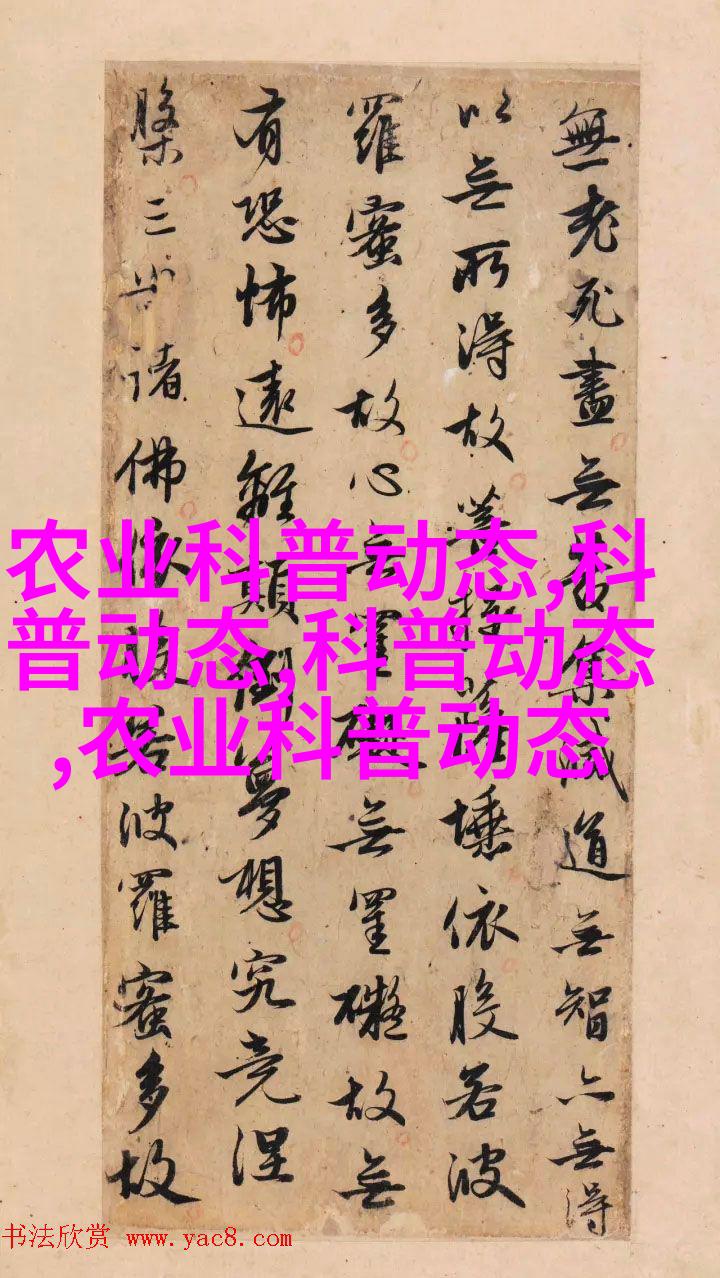 無老死盡无苦集滅道无智亦無得
以无所得故菩提薩埵依般若波
羅蜜多故心无罣礙無罣礙故無
有恐怖遠離顛倒夢想究竟涅
槃三世諸佛依般若波羅蜜多故
农业科普动态,科
普动态,科普动态
,农业科普动态
书法欣赏 www.yac8.com